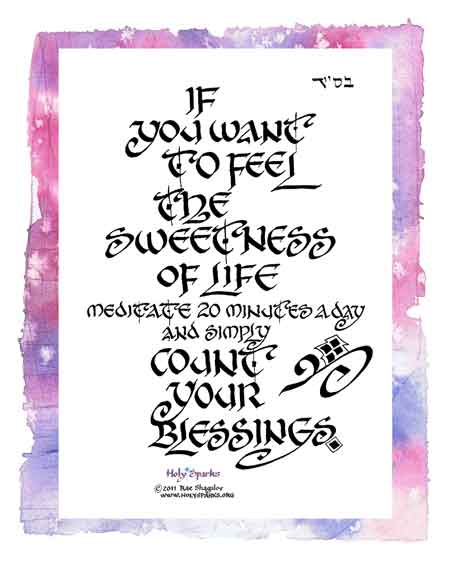 בס"ד
IF
YOU WANT
TO FEEL
THE
SWEETNESS
OF LIFE
MEDITATE 20 MINUTES A DAY
AND SIMPLY
COUNT
YOUR
BLESSINGS.
Holy Sparks
© 2011 Rae Shagalov
WWW.HOLYSPARKS.ORG